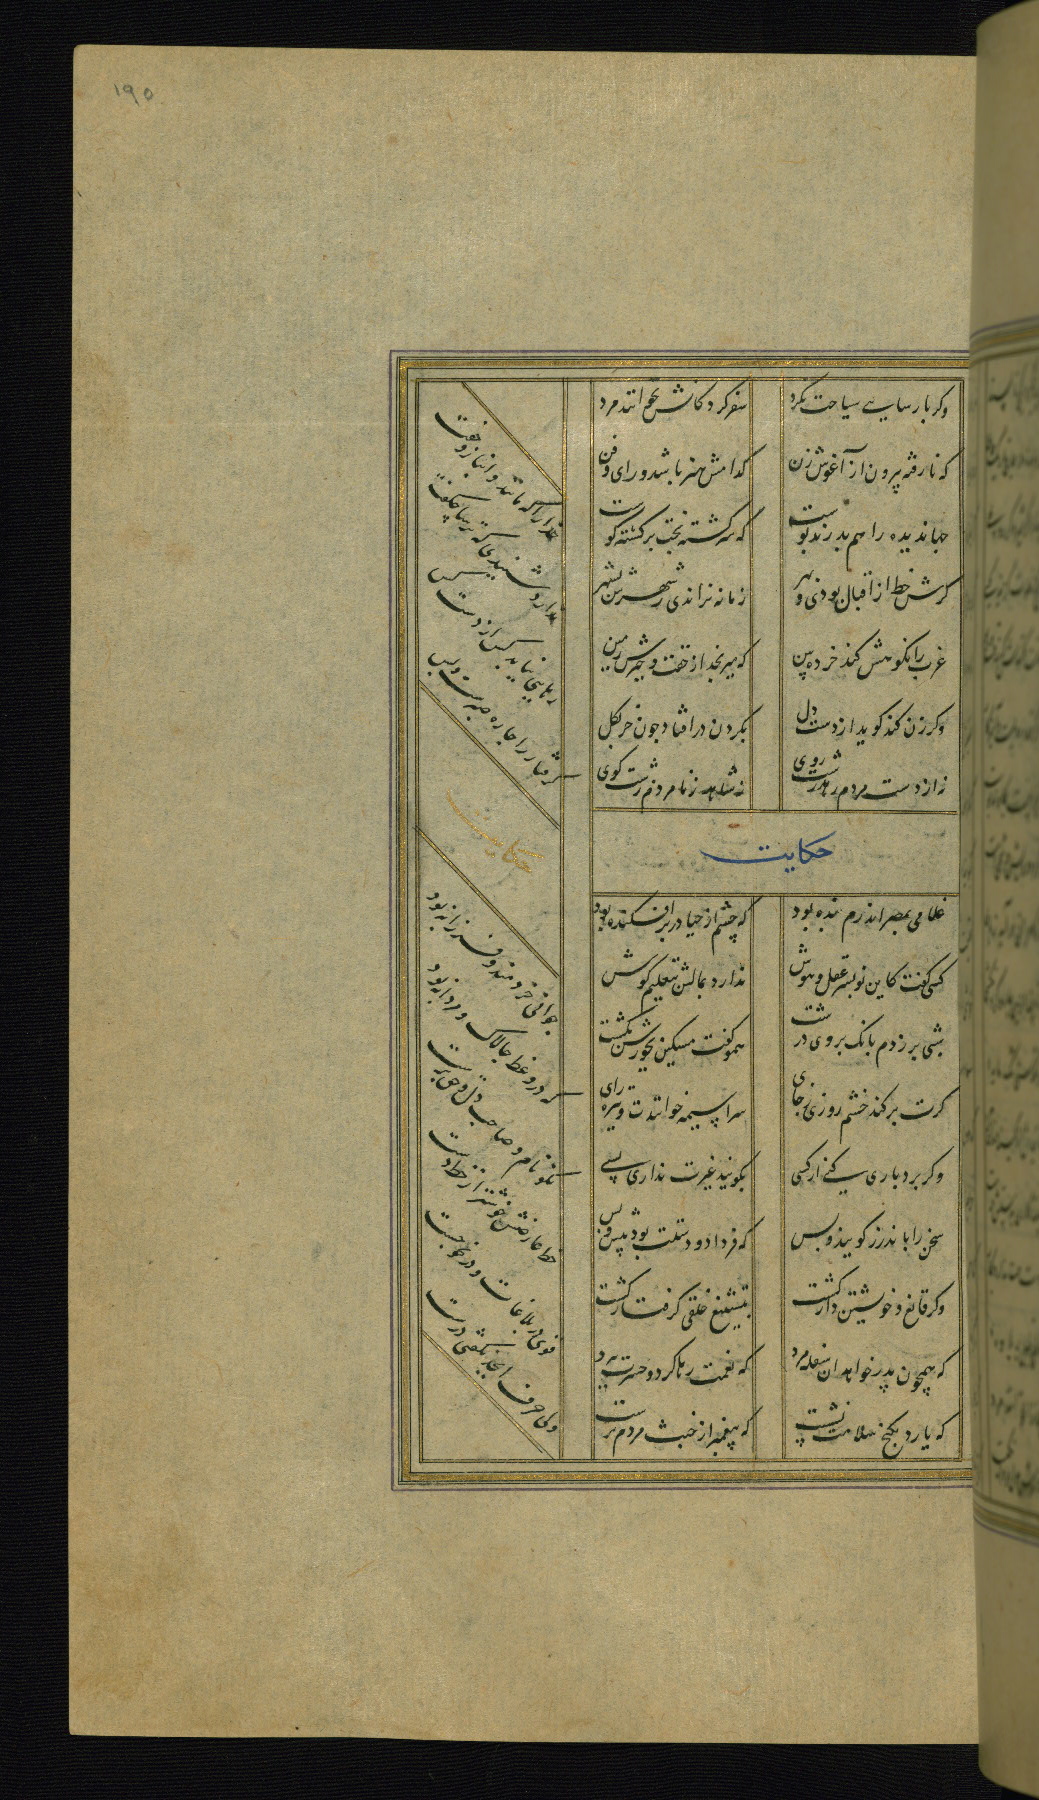 ۱۹۵
وکر پارسایی سیاحت نکرد
سفر کردکانش نخوانند مرد
که نارفته بیرون ز آغوش زن
کدامش هنر باشد و رای و فن
جهاندیده را هم بدرند پوست
که سرکشته بخت برکشته کوست
کرش حظ از اقبال بودی و بهر
زمانه نراندی ز شهرش بشهر
غرب را نکوهش کند خرده بین
که میرنجد از خفت و خیزش زمین
وکر زن کند کوید از دست دل
بکردن در افتاد چون خر بکل
نه از دست مردم رهد زشت روی
نه شاهد ز نامردم زشت کوی
حکایت
غلامی بمصر اندرم بنده بود
که چشم از حیا در بر افکنده بود
کسی کفت کاین نو پسر عقل و هوش
ندارد بمالش بتعلیم کوش
شبی بر زدم بانک بر وی درشت
همو کفت مسکین بجورش بکشت
کرت بر کند خشم روزی ز جای
سراسیمه خوانندت و تیره رای
وکر بردباری کنی از کسی
بکویند غیرت ندارد بسی
سخی را باندرز کویند بس
که فردا دو دستت بود پیش و پس
وکر قانع و خویشتن دار کشت
بتشنیع خلقی کرفتار کشت
که همچون پدر خواهد این سفله مرد
که نعمت رها کرد و حسرت ببرد
که یارد بکنج سلامت نشست
که پیغمبر از خبث مردم نرست
خدا را که مانند و انباز و جفت
ندارد شنیدی که ترسا چکفت
رهایی نیابد کس از دست کس
کرفتار را چاره صبرست و بس
حکایت
جوانی خردمند و فرزانه بود
که در وعظ چالاک و مردانه بود
نکونام و صاحب دل و حق پرست
خط عارضش خوشتر از خط دست
قوی در بلاغات و در نحو چست
ولی حرف ابجد نکفتی درست